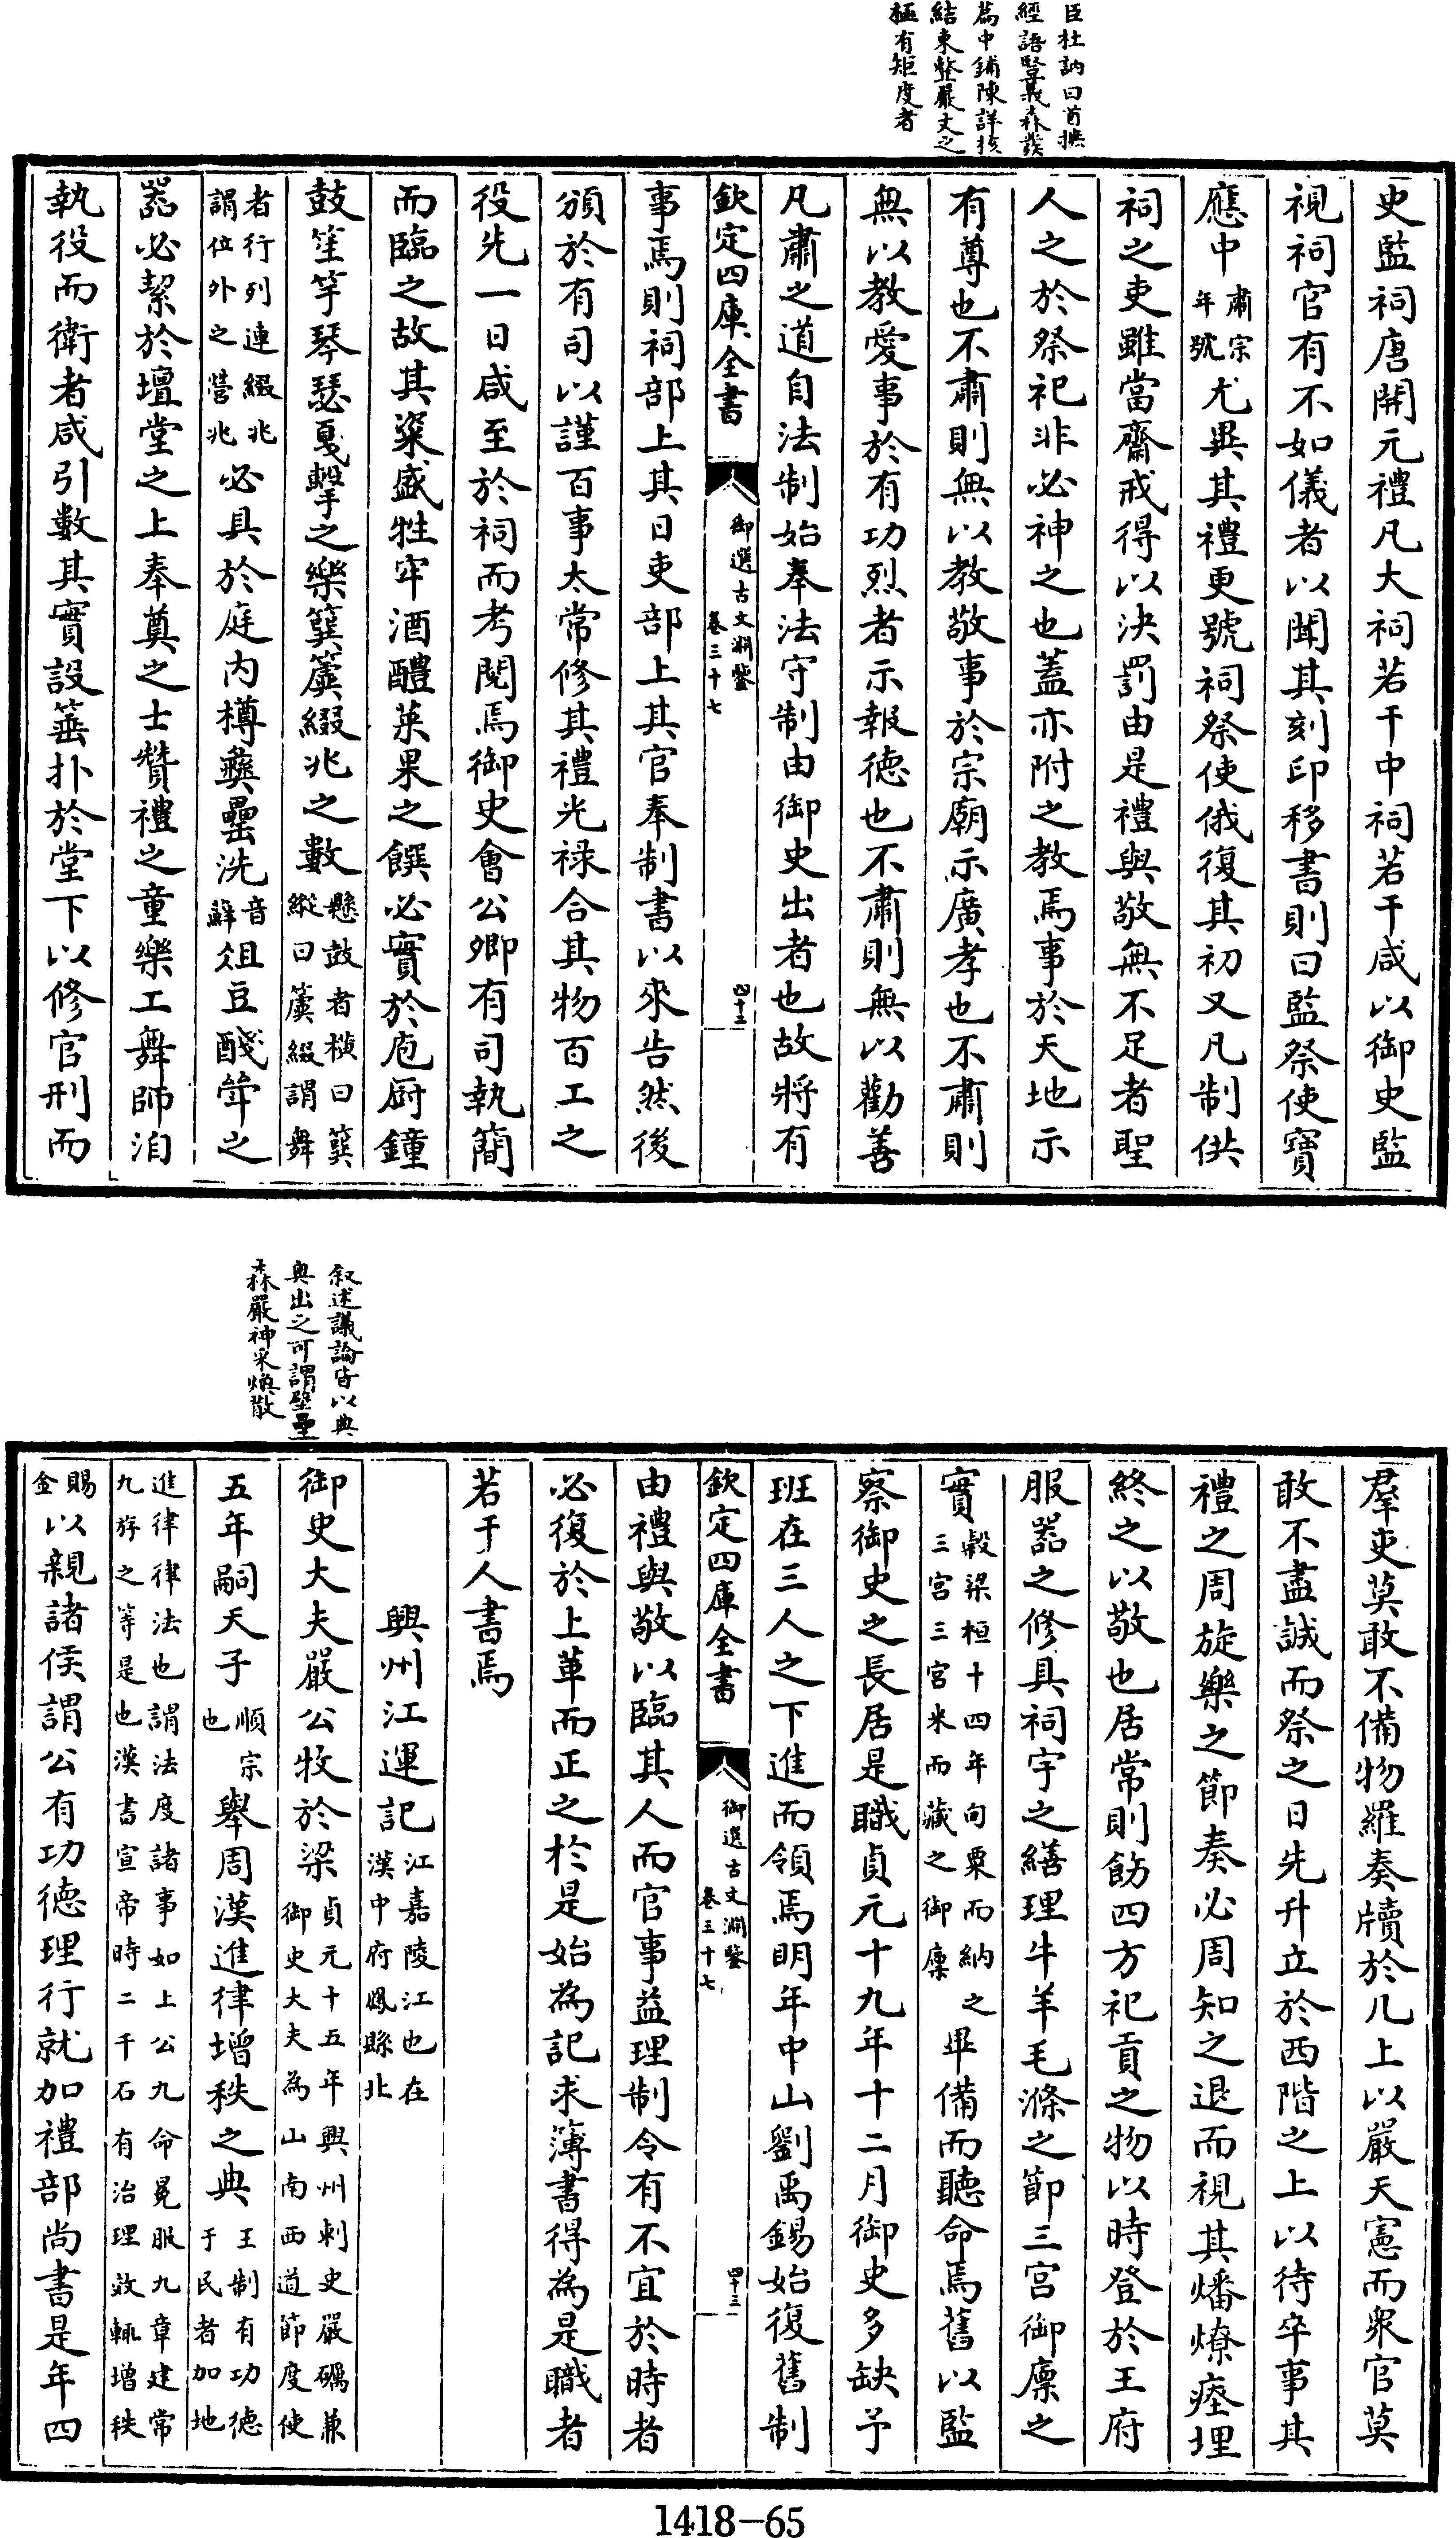 臣杜訥曰首摭
經語豎義森嚴
篇中鋪陳詳核
結束整嚴文之
極有矩度者
史監祠唐開元禮凡大祠若干中祠若干咸以御史監
視祠官有不如儀者以聞其刻印移書則曰監祭使寶
應中肅宗年號尤異其禮更號祠祭使俄復其初又凡制供
祠之吏雖當齋戒得以決罰由是禮與敬無不足者聖
人之於祭祀非必神之也蓋亦附之教焉事於天地示
有尊也不肅則無以教敬事於宗廟示廣孝也不肅則
無以教愛事於有功烈者示報德也不肅則無以勸善
凡肅之道自法制始奉法守制由御史出者也故將有
欽定四庫全書
御選古文淵鑒
卷三十七
四十二
事焉則祠部上其日吏部上其官奉制書以來告然後
頒於有司以謹百事太常修其禮光祿合其物百工之
役先一日咸至於祠而考閱焉御史會公卿有司執簡
而臨之故其粢盛牲牢酒醴菜果之饌必實於庖厨鐘
鼓笙竽琴瑟戛擊之樂簨簴綴兆之數懸鼓者橫曰簨縱曰簴綴謂舞
者行列連綴兆謂位外之營兆必具於庭内樽彝罍洗音蘚俎豆醆斝之
器必絜於壇堂之上奉奠之士贊禮之童樂工舞師洎
執役而衛者咸引數其實設篚扑於堂下以修官刑而
叙述議論皆以典
奥出之可謂壁壘
森嚴神采煥散
羣吏莫敢不備物羅奏牘於几上以嚴天憲而衆官莫
敢不盡誠而祭之日先升立於西階之上以待卒事其
禮之周旋樂之節奏必周知之退而視其燔燎瘞埋
終之以敬也居常則飭四方祀貢之物以時登於王府
服器之修具祠宇之繕理牛羊毛滌之節三宫御廩之
實榖梁桓十四年甸粟而納之三宫三宫米而藏之御廩畢備而聽命焉舊以監
察御史之長居是職貞元十九年十二月御史多缺予
班在三人之下進而領焉明年中山劉禹錫始復舊制
欽定四庫全書
御選古文淵鑒
卷三十七
四十三
由禮與敬以臨其人而官事益理制令有不宜於時者
必復於上革而正之於是始為記求簿書得為是職者
若干人書焉
興州江運記江嘉陵江也在漢中府鳳縣北
御史大夫嚴公牧於梁貞元十五年興州刺史嚴礪兼御史大夫為山南西道節度使
五年嗣天子順宗也舉周漢進律增秩之典王制有功德于民者加地
進律律法也謂法度諸事如上公九命冕服九章建常九斿之等是也漢書宣帝時二千石有治理效輒增秩
賜金以親諸侯謂公有功德理行就加禮部尚書是年四
1418-65